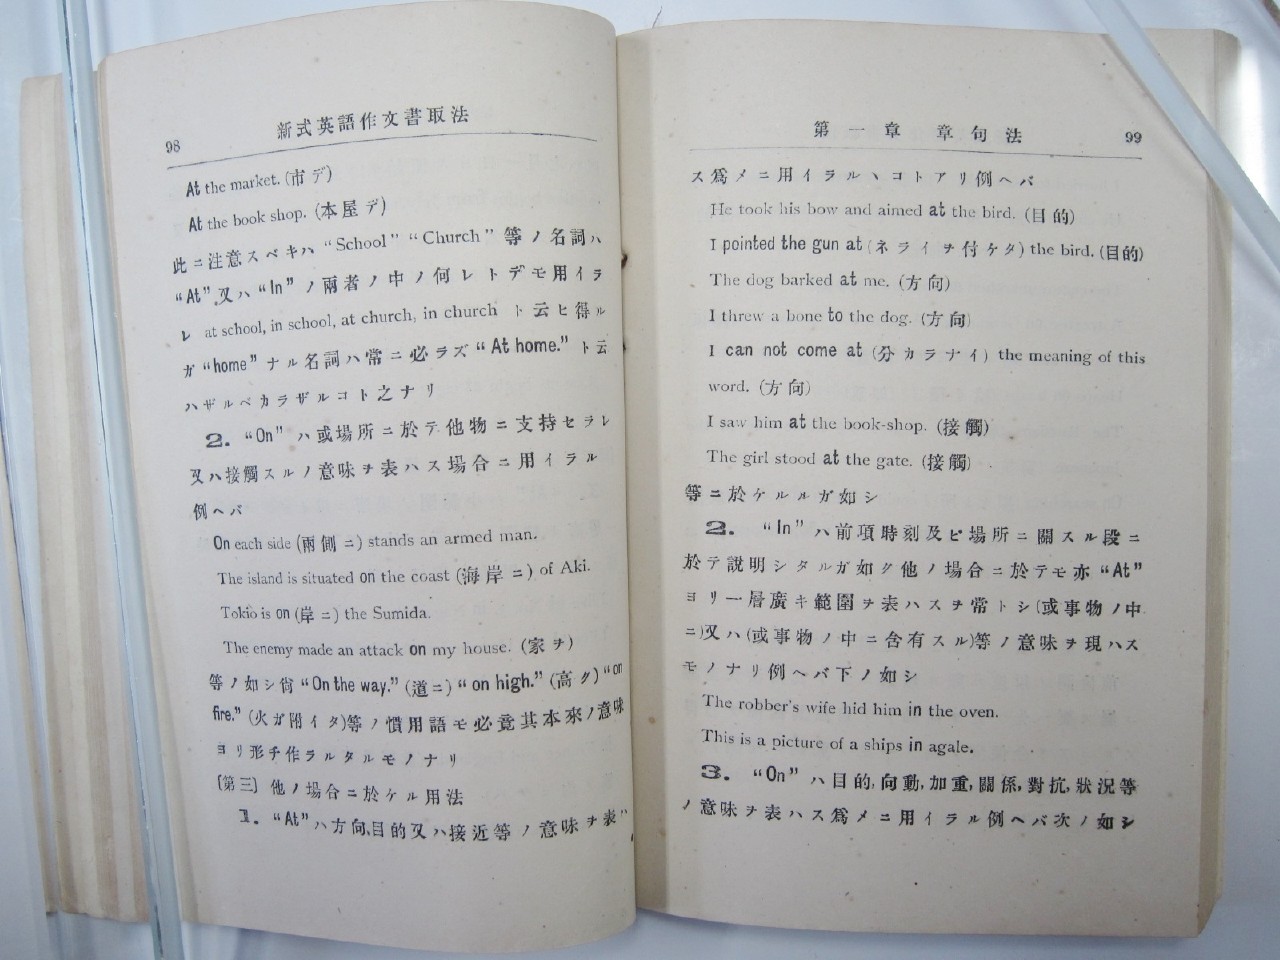 98
新式英語作文書取法
At the market. (市デ)
At the book shop. (本屋デ)
此ニ注意スベキハ "School" "Church" 等ノ名詞ハ
"At" 又ハ "In" ノ兩者ノ中ノ何レトデモ用イラ
レ at school, in school, at church, in church ト云ヒ得ル
ガ "home" ナル名詞ハ常ニ必ラズ "At home." ト云
ハザルベカラザルコト之ナリ
2. "On" ハ或場所ニ於テ他物ニ支持セラレ
又ハ接觸スルノ意味ヲ表ハス場合ニ用イラル
例ヘバ
On each side (兩側ニ) stands an armed man.
The island is situated on the coast (海岸ニ) of Aki.
Tokio is on (岸ニ) the Sumida.
The enemy made an attack on my house. (家ヲ)
等ノ如シ尙 "On the way." (道ニ) "on high." (高ク) "on
fire." (火ガ附イタ)等ノ慣用語モ必竟其本來ノ意味
ヨリ形チ作ラルタルモノナリ
〔第三〕 他ノ場合ニ於ケル用法
1. "At" ハ方向,目的又ハ接近等ノ意味ヲ表ハ
第一章 章句法
99
ス爲メニ用イラルヽコトアリ例ヘバ
He took his bow and aimed at the bird. (目的)
I pointed the gun at (ネライヲ付ケタ) the bird. (目的)
The dog barked at me. (方向)
I threw a bone to the dog. (方向)
I can not come at (分カラナイ) the meaning of this
word. (方向)
I saw him at the book-shop. (接觸)
The girl stood at the gate. (接觸)
等ニ於ケルルガ如シ
2. "In" ハ前項時刻及ビ場所ニ關スル段ニ
於テ說明シタルガ如ク他ノ場合ニ於テモ亦 "At"
ヨリ一層廣キ範圍ヲ表ハスヲ常トシ(或事物ノ中
ニ)又ハ(或事物ノ中ニ含有スル)等ノ意味ヲ現ハス
モノナリ例ヘバ下ノ如シ
The robber's wife hid him in the oven.
This is a picture of a ships in agale.
3. "On" ハ目的,向動,加重,關係,對抗,狀況等
ノ意味ヲ表ハス爲メニ用イラル例ヘバ次ノ如シ